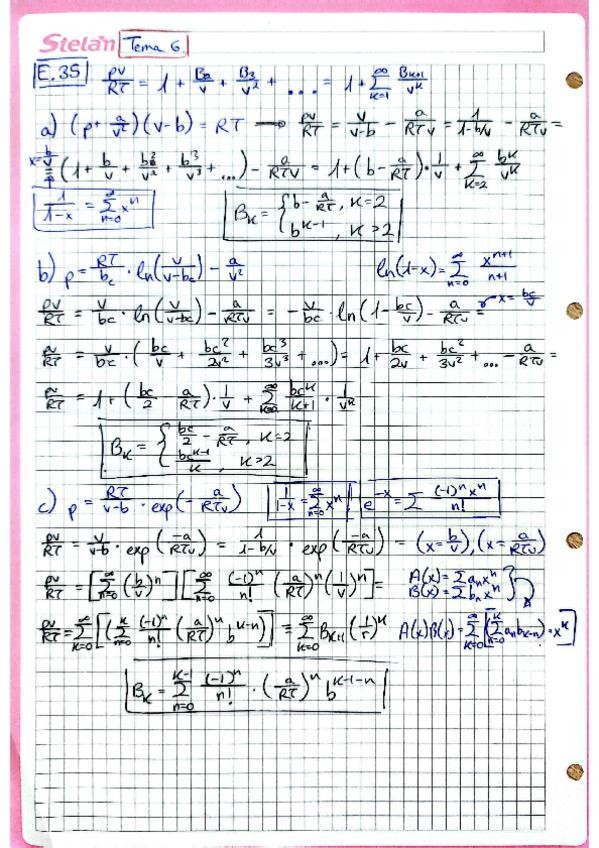 Stelan Tema 6
E.35 pv/RT = 1 + B₂/v + B₃/v² + ... = 1 + ∑_{k=1}^{∞} B_{k+1}/v^k
a) (p + a/v²)(v-b) = RT → pv/RT = v/(v-b) - a/(RTv) = 1/(1-b/v) - a/(RTv) =
x=b/v = (1 + b/v + b²/v² + b³/v³ + ...) - a/(RTv) = 1 + (b - a/RT)·1/v + ∑_{k=2}^{∞} b^k/v^k
1/(1-x) = ∑_{n=0}^{∞} x^n
B_k = { b - a/RT, k=2
b^{k-1}, k>2
b) p = RT/bc · ln(v/(v-bc)) - a/v² ln(1-x) = ∑_{n=0}^{∞} x^{n+1}/(n+1)
pv/RT = v/bc · ln(v/(v-bc)) - a/(RTv) = -v/bc · ln(1 - bc/v) - a/(RTv) = x = bc/v
pv/RT = v/bc · (bc/v + bc²/2v² + bc³/3v³ + ...) = 1 + bc/2v + bc²/3v² + ... - a/(RTv) =
pv/RT = 1 + (bc/2 - a/RT)·1/v + ∑^{∞} bc^k/(k+1) · 1/v^k
B_k = { bc/2 - a/RT, k=2
bc^{k-1}/k, k>2
c) p = RT/(v-b) · exp(-a/(RTv)) 1/(1-x) = ∑_{n=0}^{∞} x^n e^{-x} = ∑ (-1)^n x^n/n!
pv/RT = v/(v-b) · exp(-a/(RTv)) = 1/(1-b/v) · exp(-a/(RTv)) = (x = b/v), (x = a/(RTv))
pv/RT = [∑_{n=0}^{∞} (b/v)^n][∑_{n=0}^{∞} (-1)^n/n! (a/RT)^n (1/v)^n] = A(x) = ∑ a_n x^n
B(x) = ∑ b_n x^n
pv/RT = ∑_{k=0}^{∞} [(∑_{n=0}^{k} (-1)^n/n! (a/RT)^n b^{k-n})] ≡ ∑_{k=0}^{∞} B_{k+1} (1/v)^k A(x)B(x) = ∑_{k=0}^{∞} [(∑_{n=0}^{k} a_n b_{k-n})·x^k]
B_k = ∑_{n=0}^{k-1} (-1)^n/n! · (a/RT)^n b^{k-1-n}